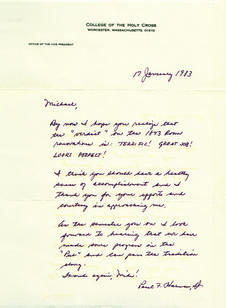 COLLEGE OF THE HOLY CROSS
WORCESTER, MASSACHUSETTS 01610
OFFICE OF THE VICE PRESIDENT
17 January 1983
Michael,
By now I hope you realize that
the "verdict" on the 1843 Room
renovation is: TERRIFIC! GREAT JOB!
LOOKS PERFECT!
I think you should have a healthy
sense of accomplishment and I
thank you for your efforts and
courtesy in approaching me.
As the semester goes on I look
forward to hearing that we have
made some progress in the
"Pub" and can pass the tradition
along.
Thanks again, Mike!
Paul F.